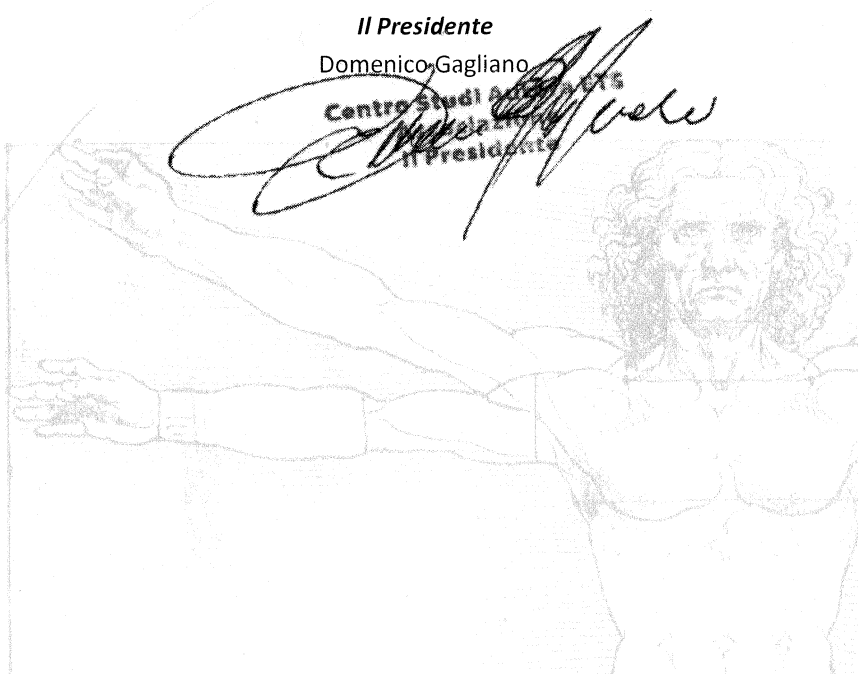 Il Presidente
Domenico Gagliano
Centro Studi ETS
Il Presidente